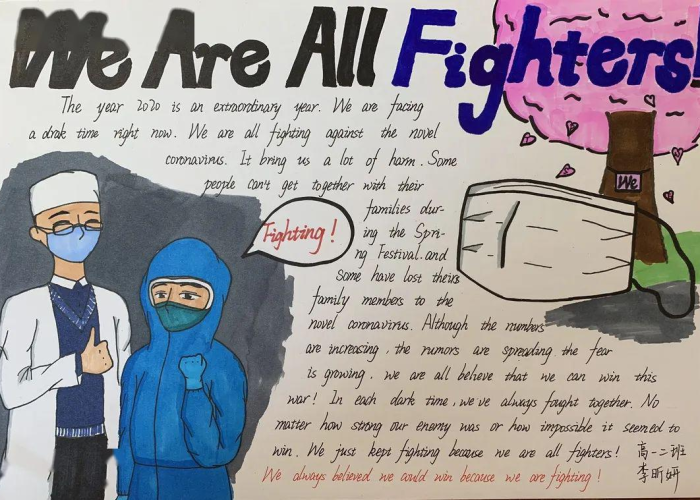 We Are All Fighters!
The year 2020 is an extraordinary year. We are facing
a drak time right now. We are all fighting against the novel
coronavirus. It bring us a lot of harm. Some
people can't get together with their
families dur-
ing the Spri-
ng Festival. and
some have lost theirs
family members to the
novel coronavirus. Although the numbers
are increasing, the rumors are spreading. the fear
is growing. we are all believe that we can win this
war! In each dark time, we've always fought together. No
matter how strong our enemy was or how impossible it seemed to
win. We just kept fighting because we are all fighters!
We always believed we could win because we are fighting!
Fighting!
We
高一二班
李昕妍